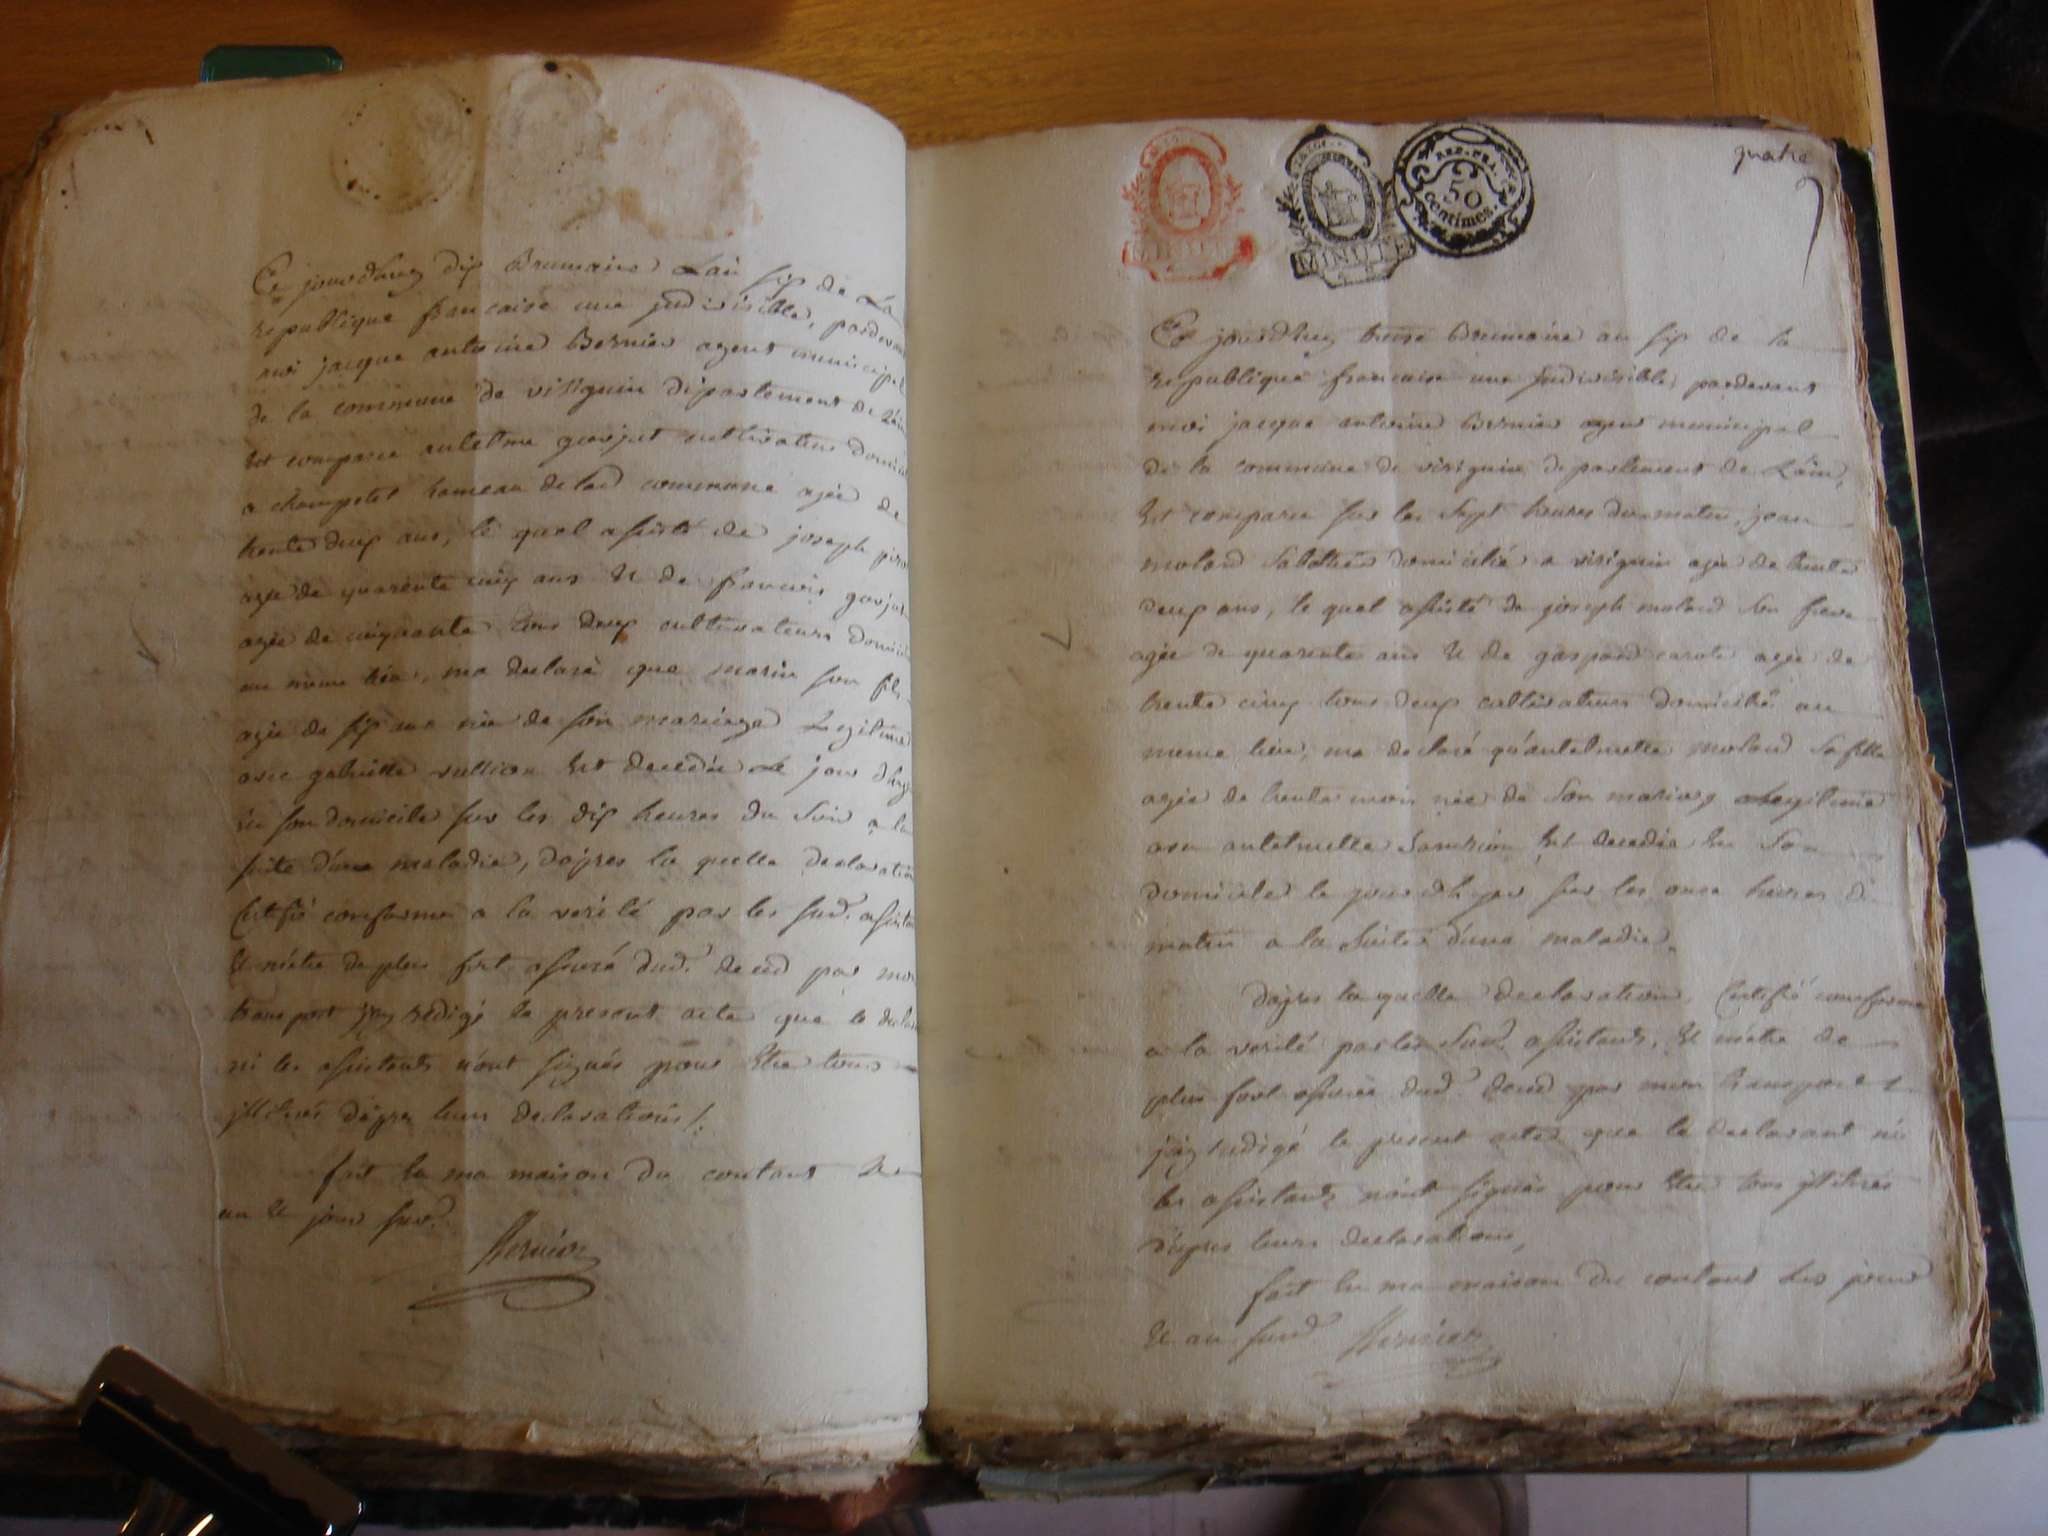 Ce jourdhuy dix Brumaire Lan six de La
republique francaise une jndivisible, pardevant
moi jacque antoine Bernier agent municipal
de la commune de virignin département de Lain
Est comparu antelme goujet cultivateur domici
a champtel hameau de lad commune agée de
trente deux ans, le quel assisté de joseph
agé de quarente cinq ans Et de francois goujet
agée de cinquante tous deux cultivateurs domici
au meme lieu, ma declaré que marin son fils
agée de six née de son mariage Legitime
avec gabriette vullion Est decedée Le jour dhuy
En son domicile sur les dix heures du soir a la
suite d'une maladie, dapres la quelle declaration
Certifié conforme a la verité par les sud. assistan
Et m'etre de plus fort assuré dud. deced par mon
transport j'ay redigé le present acte que le declar
ni les assistants n'ont signés pour Etre tous
jlliterés dapres leur declarations /.
fait En ma maison du contant Les
an Et jour sus d.
Bernier
quatre
MINUTE
MINUTE
REP. FRA.
50
centimes.
Ce jourdhuy treise Brumaire an six de la
republique francaise une jndivisible, pardevant
moi jacque antoine Bernier agent municipal
de la commune de virignin departement de Lain,
Est comparu sur les sept heures du matin, jean
molard Sabottier domicilié a virignin agée de trente
deux ans, le quel assisté de joseph molard son frere
agée de quarente ans Et de gaspard carote agée de
trente cinq tous deux cultivateurs domiciliés au
meme lieu, ma declaré qu'antelmette molard sa fille
agée de trente mois née de son mariage Legitime
avec antelmette Est decedée En son
domicile le jour dhyer sur les onze heures du
matin a la suite d'une maladie.
Dapres la quelle declaration, Certifié conforme
a la verité par les sud. assistants, Et m'etre de
plus fort assurée dud. deced par mon transport
j'ay redigé le present acte que le declarant ni
les assistants n'ont signés pour Etre tous jlliterés
d'apres leurs declarations,
fait En ma maison du contant Les jour
Et an susd. Bernier